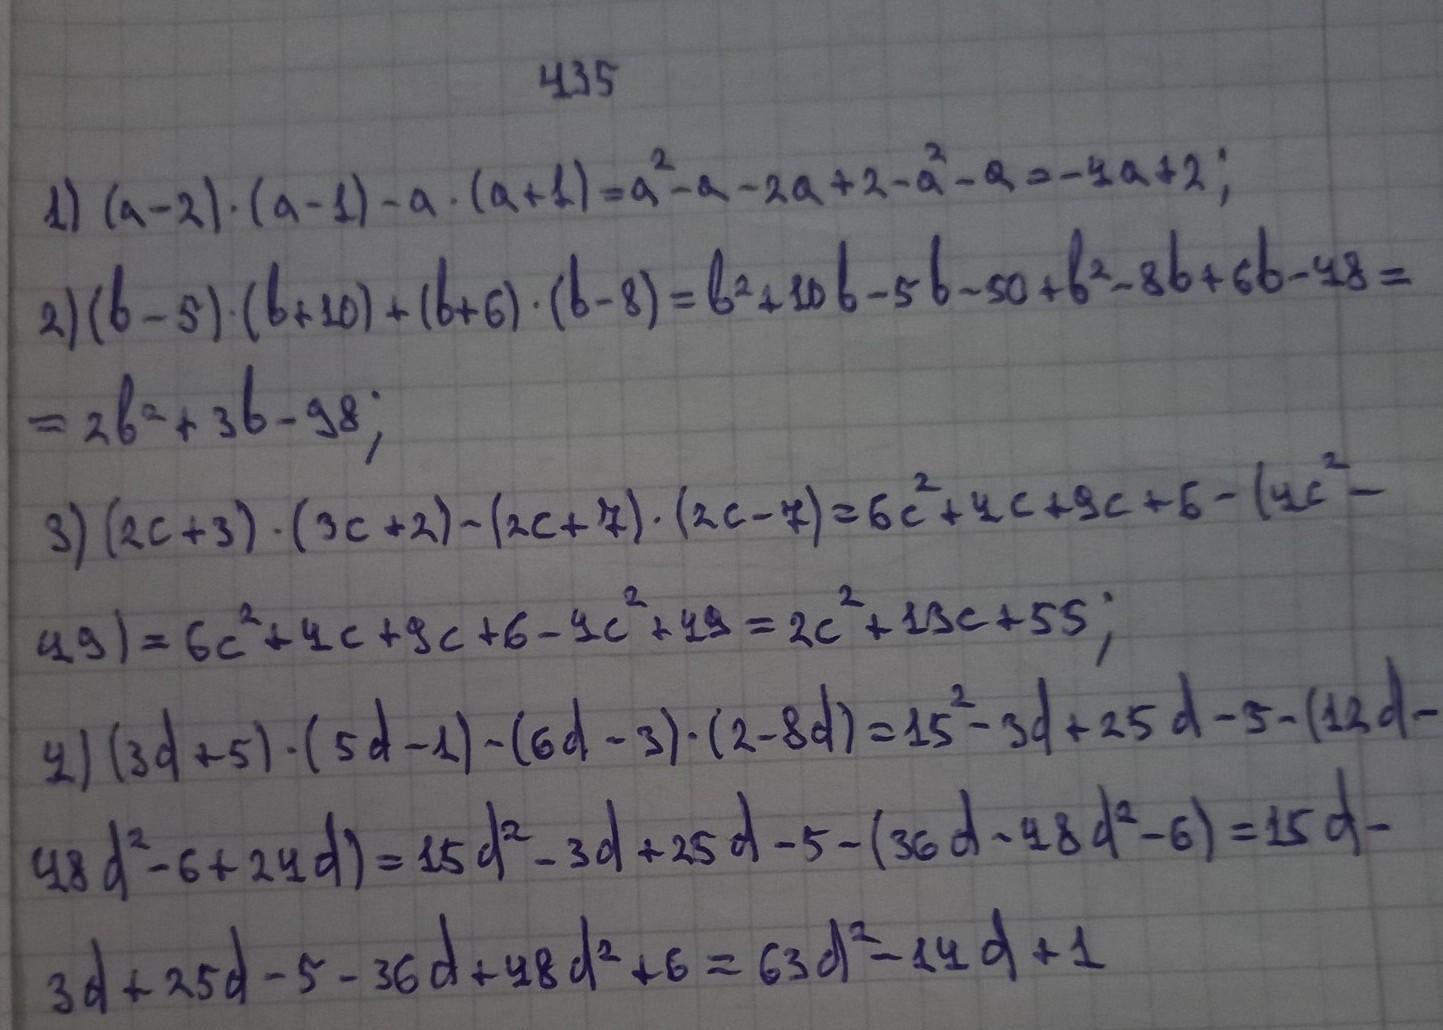 435
1) (a-2)·(a-1)-a·(a+1)=a²-a-2a+2-a²-a=-4a+2;
2) (b-5)·(b+10)+(b+6)·(b-8)=b²+10b-5b-50+b²-8b+6b-48=
=2b²+3b-98;
3) (2c+3)·(3c+2)-(2c+7)·(2c-7)=6c²+4c+9c+6-(4c²-
49)=6c²+4c+9c+6-4c²+49=2c²+13c+55;
4) (3d+5)·(5d-1)-(6d-3)·(2-8d)=15²-3d+25d-5-(12d-
48d²-6+24d)=15d²-3d+25d-5-(36d-48d²-6)=15d-
3d+25d-5-36d+48d²+6=63d²-14d+1